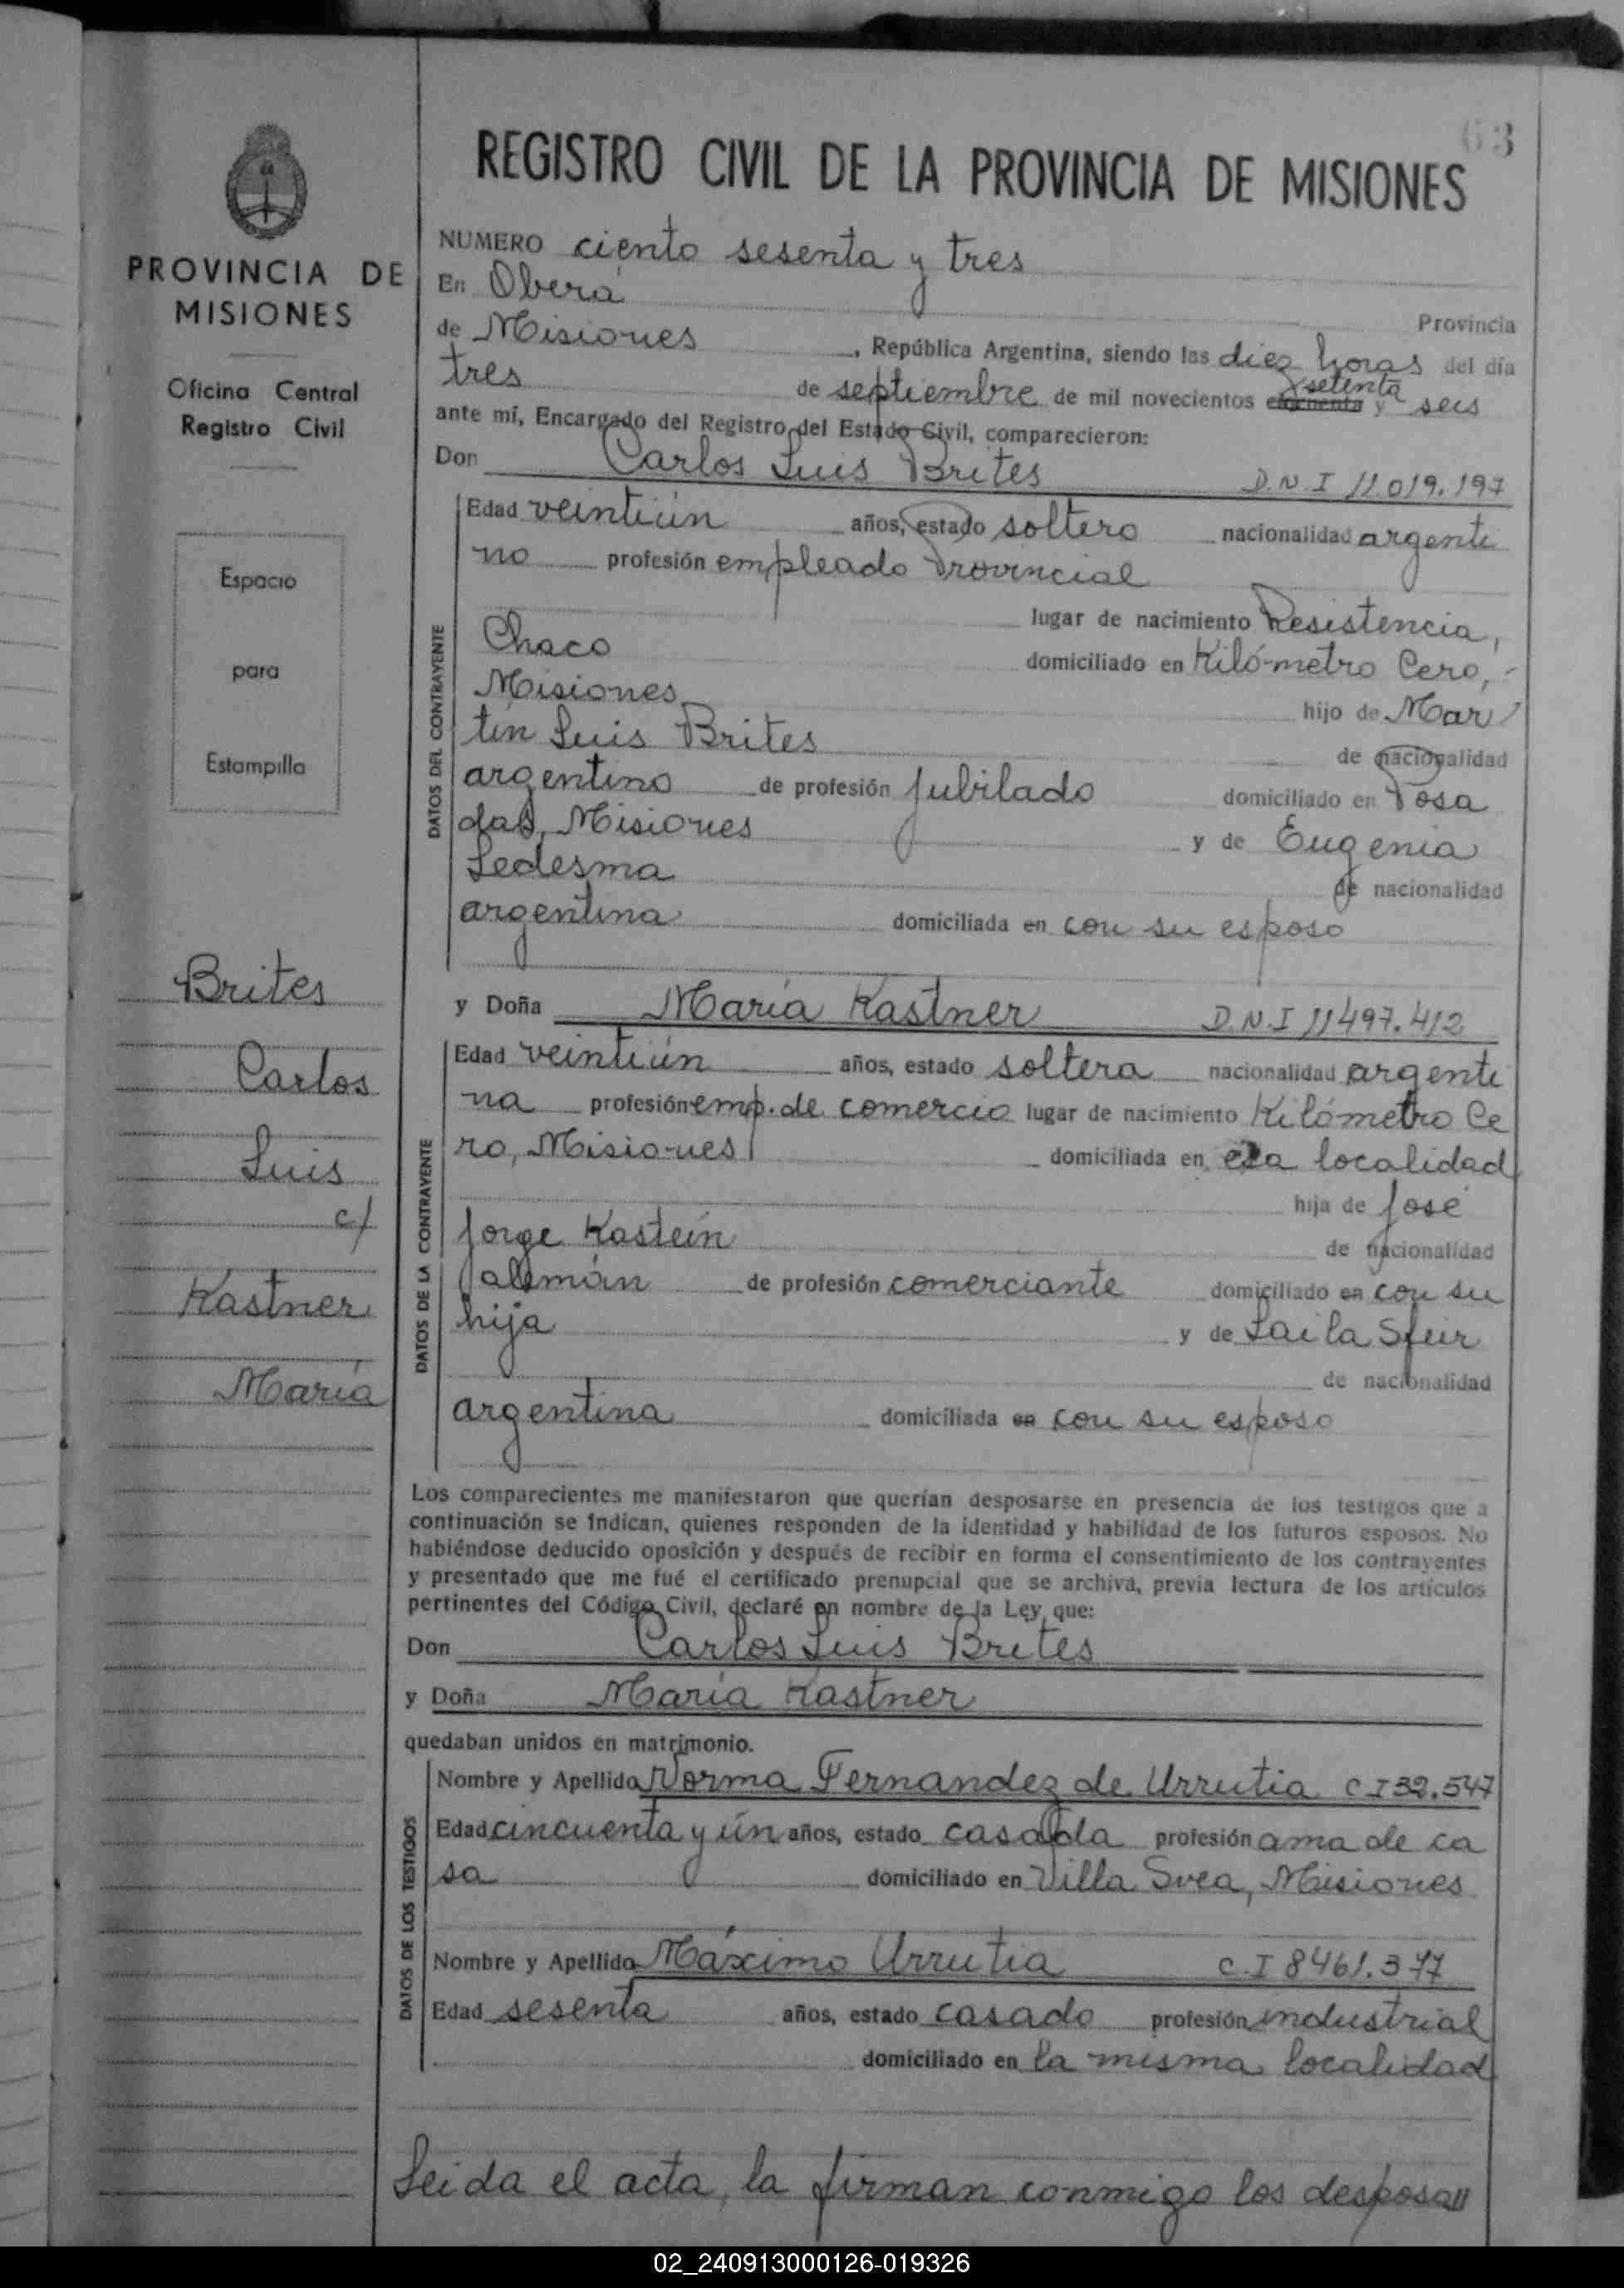 63
REGISTRO CIVIL DE LA PROVINCIA DE MISIONES
PROVINCIA DE
MISIONES
Oficina Central
Registro Civil
Espacio
para
Estampilla
Brites
Carlos
Luis
c/
Kastner
María
NUMERO ciento sesenta y tres
En Oberá
Provincia
de Misiones , República Argentina, siendo las diez horas del día
tres de septiembre de mil novecientos cincuenta setenta y seis
ante mí, Encargado del Registro del Estado Civil, comparecieron:
Don Carlos Luis Brites D.N.I 11.019.197
DATOS DEL CONTRAYENTE
Edad veintiún años, estado soltero nacionalidad argenti
no profesión empleado Provincial
lugar de nacimiento Resistencia,
Chaco domiciliado en Kilómetro Cero,
Misiones hijo de Mar
tín Luis Brites de nacionalidad
argentino de profesión jubilado domiciliado en Posa
das, Misiones y de Eugenia
Ledesma de nacionalidad
argentina domiciliada en con su esposo
y Doña María Kastner D.N.I 11497.412
DATOS DE LA CONTRAYENTE
Edad veintiún años, estado soltera nacionalidad argenti
na profesión emp. de comercio lugar de nacimiento Kilómetro Ce
ro, Misiones domiciliada en esa localidad
hija de José
Jorge Kastein de nacionalidad
alemán de profesión comerciante domiciliado en con su
hija y de Laila Sfeir
de nacionalidad
argentina domiciliada en con su esposo
Los comparecientes me manifestaron que querían desposarse en presencia de los testigos que a
continuación se indican, quienes responden de la identidad y habilidad de los futuros esposos. No
habiéndose deducido oposición y después de recibir en forma el consentimiento de los contrayentes
y presentado que me fué el certificado prenupcial que se archiva, previa lectura de los artículos
pertinentes del Código Civil, declaré en nombre de la Ley que:
Don Carlos Luis Brites
y Doña María Kastner
quedaban unidos en matrimonio.
DATOS DE LOS TESTIGOS
Nombre y Apellido Norma Fernandez de Urrutia C I 32.547
Edad cincuenta y ún años, estado casada profesión ama de ca
sa domiciliado en Villa Svea, Misiones
Nombre y Apellido Máximo Urrutia C.I 8461.377
Edad sesenta años, estado casado profesión industrial
domiciliado en la misma localidad
Leida el acta, la firman conmigo los desposa//
02_240913000126-019326